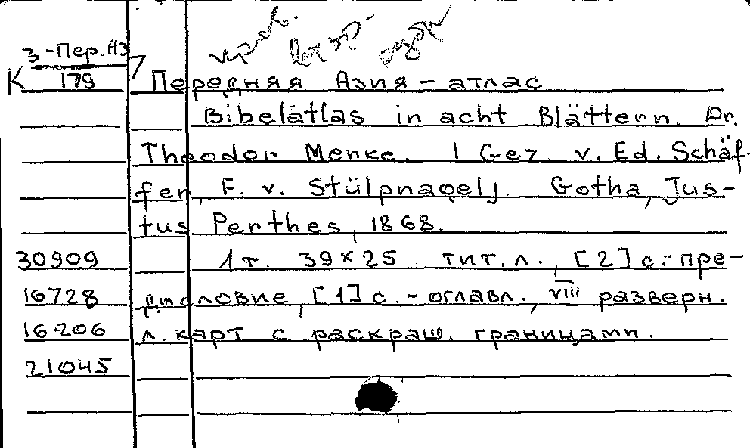 3-Пер.АЗ
К 179
Передняя Азия - атлас
Bibelatlas in acht Blättern. Dr.
Theodor Menke. [Gez. v. Ed. Schäf-
fer, F. v. Stülpnagel]. Gotha, Jus-
tus Perthes, 1868.
30909 1 т. 39 x 25 тит. л., [2] с.-пре-
16728 дисловие, [1] с. - оглавл., VIII разверн.
16206 л. карт с раскраш. границами.
21045